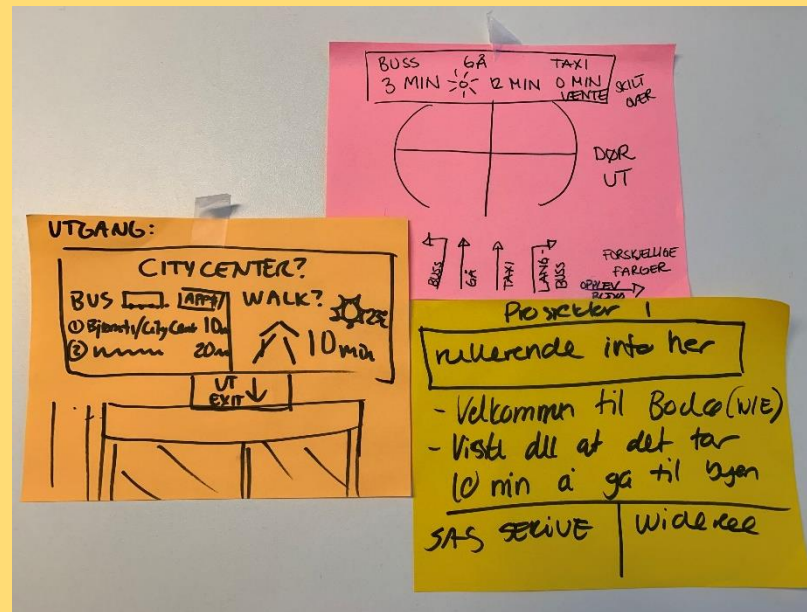 BUSS GÅ TAXI
3 MIN 12 MIN 0 MIN
VENTE
SKILT
OVER
DØR
UT
BUSS
GÅ
TAXI
LANG-
BUSS
FORSKJELLIGE
FARGER
OPPLEV
UTGANG:
CITYCENTER?
BUS APP WALK?
① /City Cent 10m
② 20m
10 min
UT
EXIT
Prosjektor 1
rullerende info her
- Velkommen til Bodø (WIE)
- Visste du at det tar
10 min å gå til byen
SAS SERIVE Widerøe